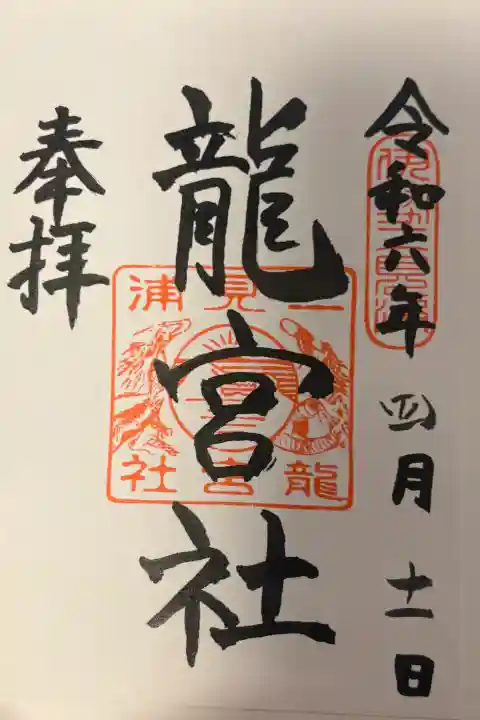 令和六年四月十一日
龍宮社
奉拝
二見浦
龍宮社